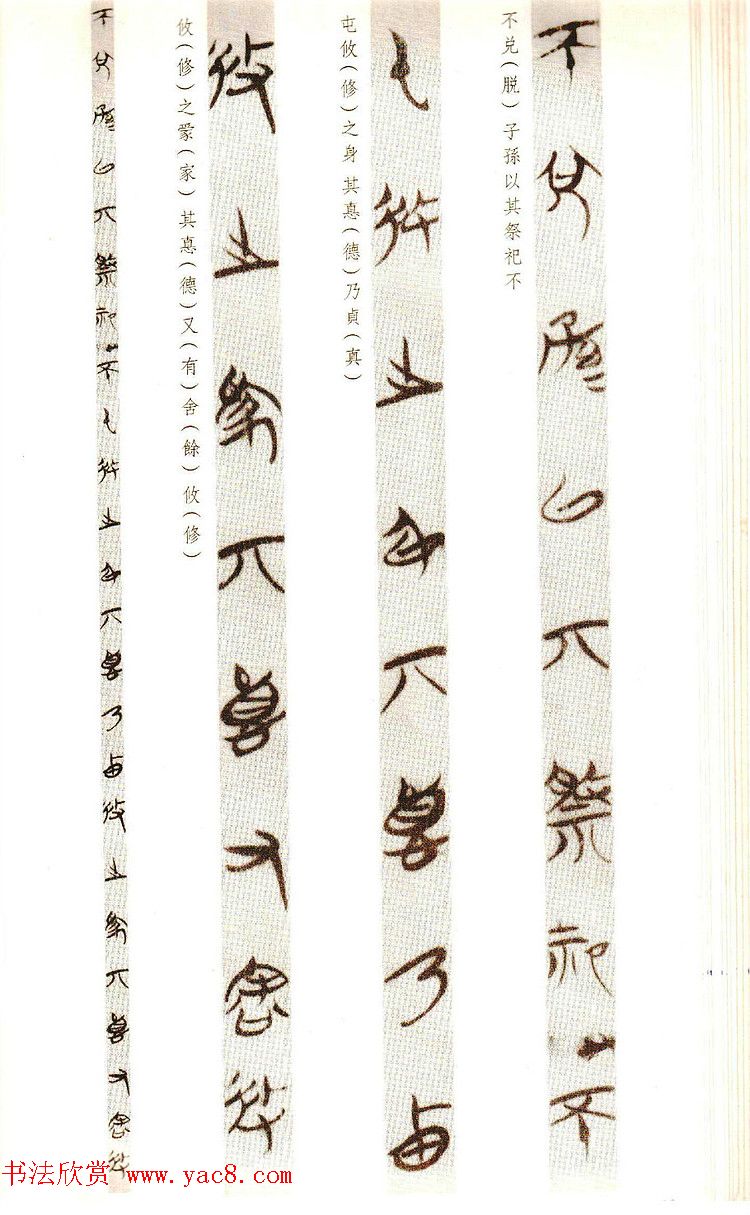 不兑（脱）子孫以其祭祀不
屯攸（修）之身其悳（德）乃貞（真）
攸（修）之冡（家）其悳（德）又（有）舍（餘）攸（修）
书法欣赏 www.yac8.com